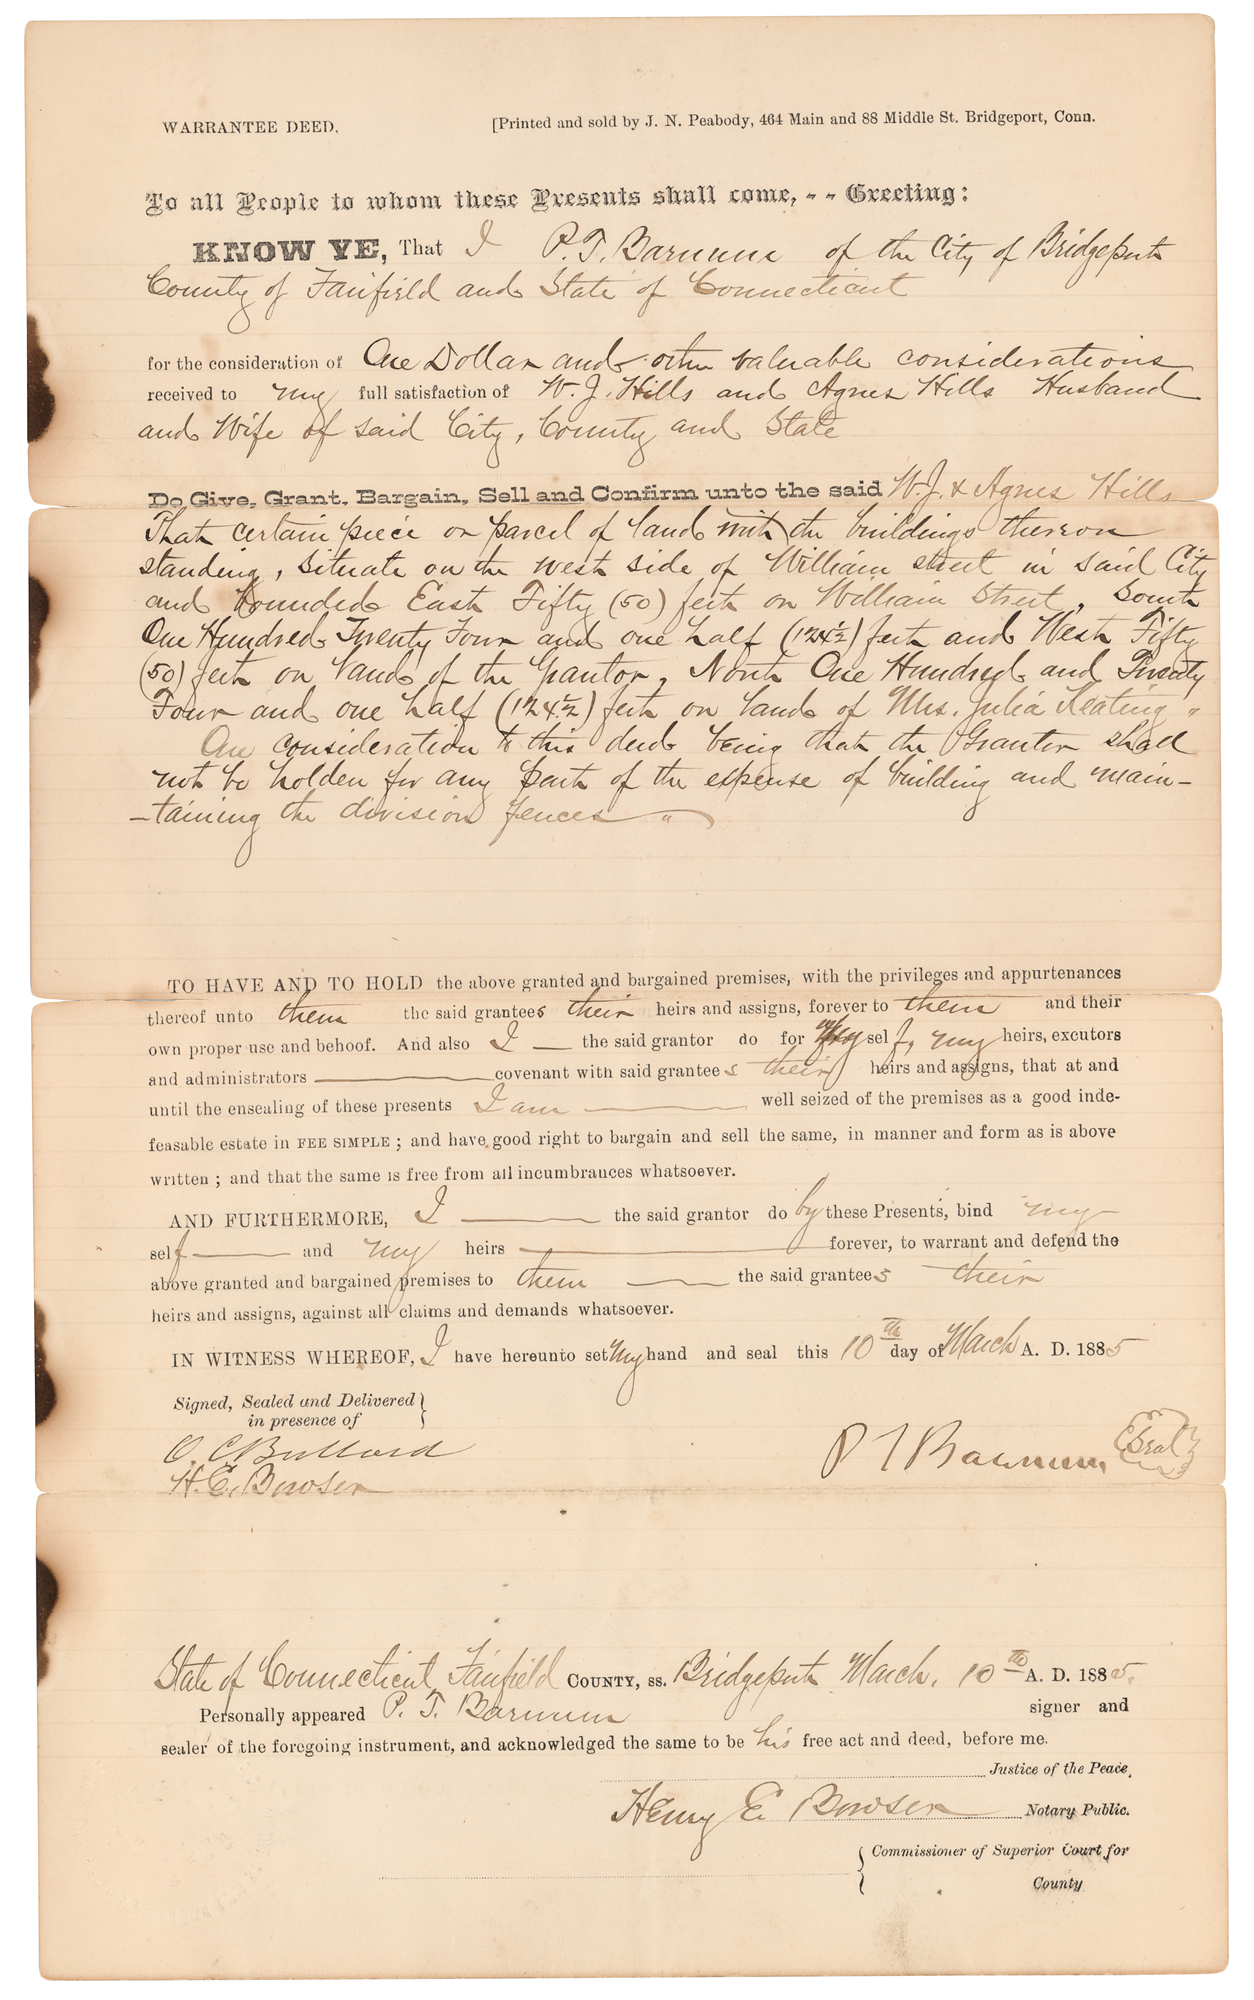 WARRANTEE DEED.
[Printed and sold by J. N. Peabody, 464 Main and 88 Middle St. Bridgeport, Conn.
To all People to whom these Presents shall come, - - Greeting:
KNOW YE, That I P. T. Barnum of the City of Bridgeport
County of Fairfield and State of Connecticut
for the consideration of One Dollar and other valuable considerations
received to my full satisfaction of W. J. Hills and Agnes Hills Husband
and Wife of said City, County and State
Do Give, Grant, Bargain, Sell and Confirm unto the said W. J. & Agnes Hills
That certain piece or parcel of land with the buildings thereon
standing, situate on the west side of William street in said City
and bounded East Fifty (50) feet on William Street, South
One Hundred Twenty Four and one half (124½) feet and West Fifty
(50) feet on land of the Grantor, North One Hundred and Twenty
Four and one half (124½) feet on land of Mrs. Julia Keating "
One consideration to this deed being that the Grantor shall
not be holden for any part of the expense of building and main-
-taining the division fences "
TO HAVE AND TO HOLD the above granted and bargained premises, with the privileges and appurtenances
thereof unto them the said grantees their heirs and assigns, forever to them and their
own proper use and behoof. And also I the said grantor do for my self, my heirs, excutors
and administrators covenant with said grantees their heirs and assigns, that at and
until the ensealing of these presents I am well seized of the premises as a good inde-
feasable estate in FEE SIMPLE ; and have good right to bargain and sell the same, in manner and form as is above
written ; and that the same is free from all incumbrances whatsoever.
AND FURTHERMORE, I the said grantor do by these Presents, bind my
self and my heirs forever, to warrant and defend the
above granted and bargained premises to them the said grantees their
heirs and assigns, against all claims and demands whatsoever.
IN WITNESS WHEREOF, I have hereunto set my hand and seal this 10th day of March A. D. 1885
Signed, Sealed and Delivered
in presence of
O. C. Bullard
P T Barnum Seal
H. E. Bowser
State of Connecticut Fairfield COUNTY, ss. Bridgeport March. 10th A. D. 1885.
Personally appeared P. T. Barnum signer and
sealer of the foregoing instrument, and acknowledged the same to be his free act and deed, before me.
Justice of the Peace.
Henry E. Bowser Notary Public.
Commissioner of Superior Court for
County